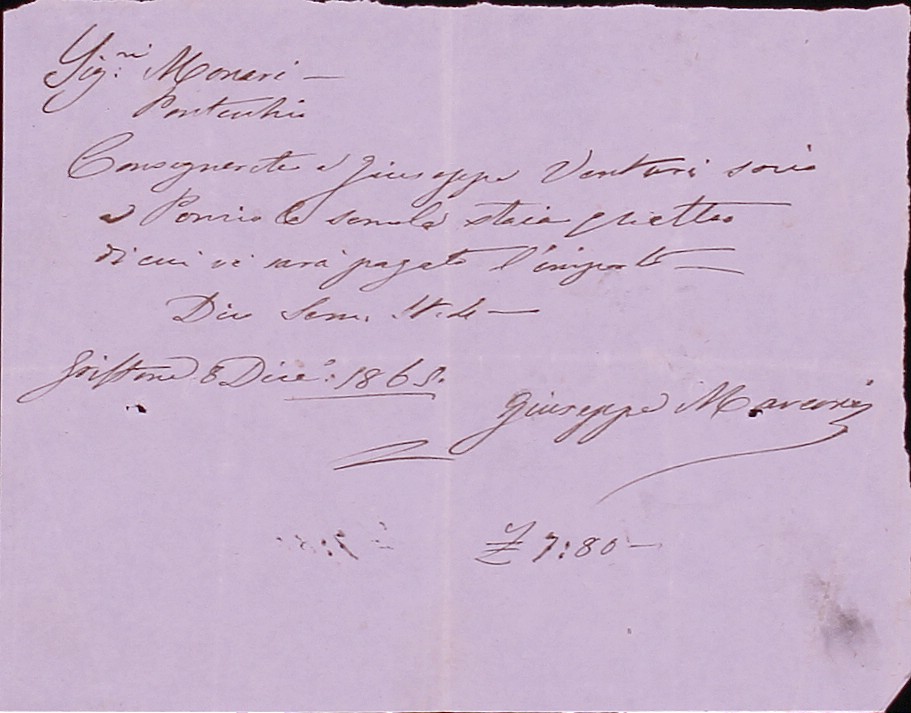 Sig.ri Monari —
Pontecchio
Consegnerete a Giuseppe Venturi socio
a semola staia quattro
di cui vi sarà pagato l'importo —
Dico Sem. St. 4 —
8 Dice. 1865.
Giuseppe Marconi
£ 7:80 —